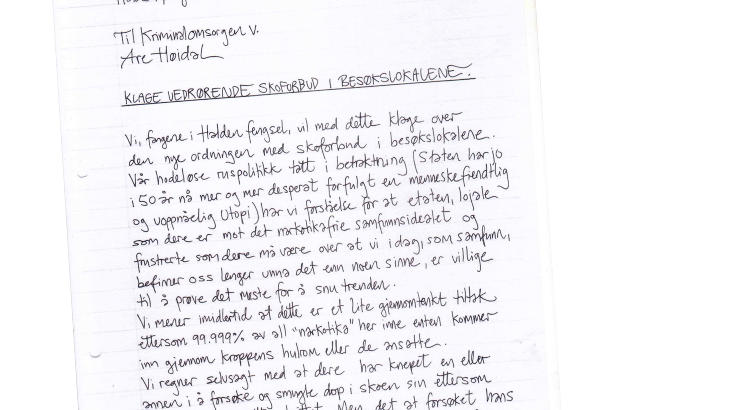 Til Kriminalomsorgen v.
Are Høidal
KLAGE VEDRØRENDE SKOFORBUD I BESØKSLOKALENE.
Vi, fangene i Halden fengsel, vil med dette klage over
den nye ordningen med skoforbud i besøkslokalene.
Vår hodeløse ruspolitikk tatt i betraktning (Staten har jo
i 50 år nå mer og mer desperat forfulgt en menneskefiendtlig
og uoppnåelig Utopi) har vi forståelse for at etaten, lojale
som dere er mot det narkotikafrie samfunnsidealet og
frustrerte som dere må være over at vi i dag, som samfunn,
befinner oss lenger unna det enn noen sinne, er villige
til å prøve det meste for å snu trenden.
Vi mener imidlertid at dette er et lite gjennomtenkt tiltak
ettersom 99.999% av all "narkotika" her inne enten kommer
inn gjennom kroppens hulrom eller de ansatte.
Vi regner selvsagt med at dere har knepet en eller
annen i å forsøke og smugle dop i skoen sin ettersom
Men det at forsøket hans